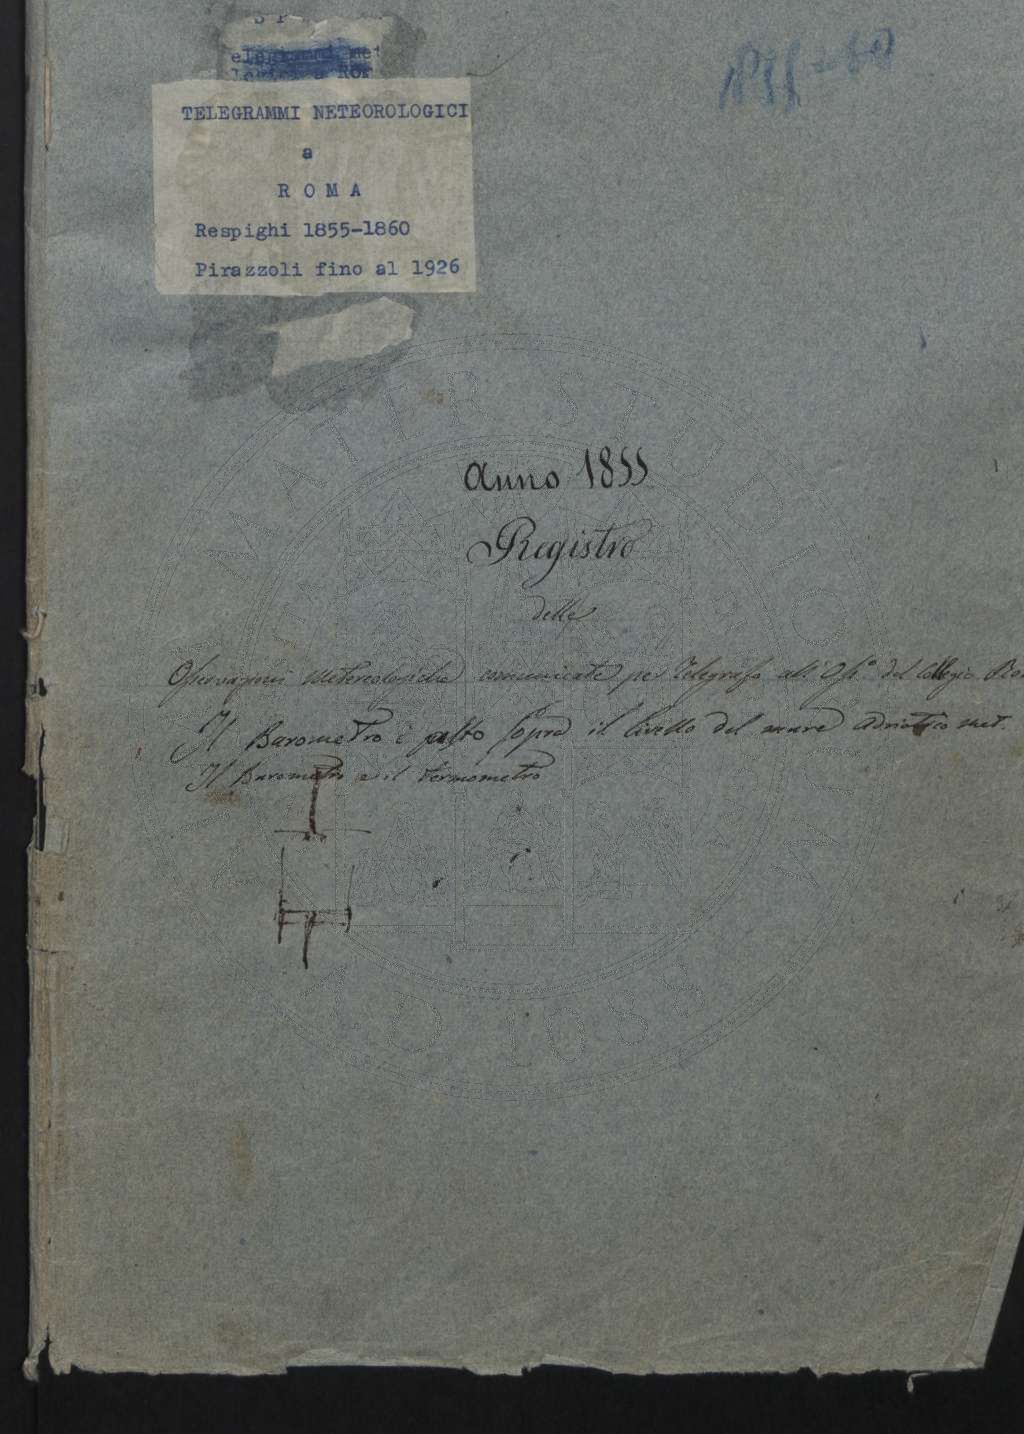 TELEGRAMMI NETEOROLOGICI
a
R O M A
Respighi 1855-1860
Pirazzoli fino al 1926
1855-60
Anno 1855
Registro
delle
Osservazioni Metereologiche comunicate per Telegrafo all' Oss° del Collegio Ro
Il Barometro è posto sopra il livello del mare Adriatico met.
Il Barometro e il termometro
ALMA MATER STUDIORUM
A.D. 1088